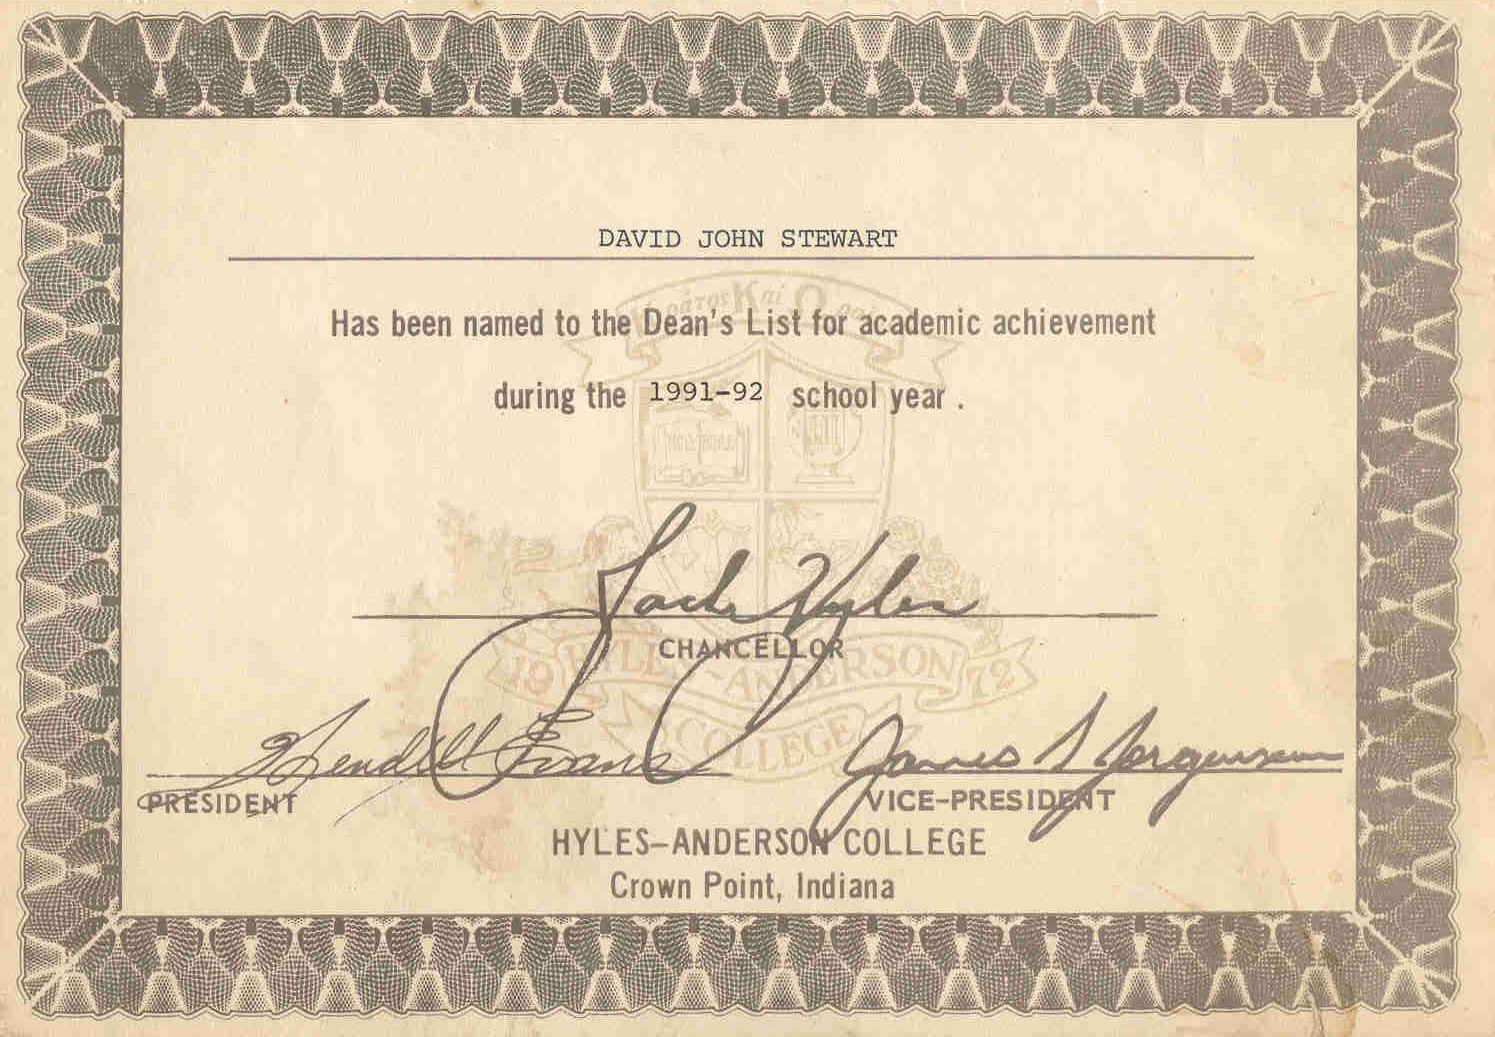 DAVID JOHN STEWART
Has been named to the Dean's List for academic achievement
during the 1991-92 school year .
HOLY BIBLE
Jack Hyles
CHANCELLOR
19 HYLES-ANDERSON 72
COLLEGE
Wendell Evans
James S Jorgensen
PRESIDENT
VICE-PRESIDENT
HYLES-ANDERSON COLLEGE
Crown Point, Indiana